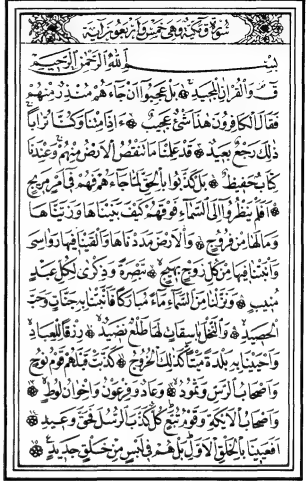 سُورَةُ قٓ مَكِّيَّةٌ وَهِيَ خَمْسٌ وَأَرْبَعُونَ آيَةً
بِسْمِ اللّٰهِ الرَّحْمٰنِ الرَّحِيمِ
قٓ وَالْقُرْاٰنِ الْمَجِيدِ ۝ بَلْ عَجِبُوا أَنْ جَاءَهُمْ مُنْذِرٌ مِنْهُمْ
فَقَالَ الْكَافِرُونَ هٰذَا شَيْءٌ عَجِيبٌ ۝ ءَاِذَا مِتْنَا وَكُنَّا تُرَابًا
ذٰلِكَ رَجْعٌ بَعِيدٌ ۝ قَدْ عَلِمْنَا مَا تَنْقُصُ الْأَرْضُ مِنْهُمْ وَعِنْدَنَا
كِتَابٌ حَفِيظٌ ۝ بَلْ كَذَّبُوا بِالْحَقِّ لَمَّا جَاءَهُمْ فَهُمْ فِي أَمْرٍ مَرِيجٍ
۝ أَفَلَمْ يَنْظُرُوا إِلَى السَّمَاءِ فَوْقَهُمْ كَيْفَ بَنَيْنَاهَا وَزَيَّنَّاهَا
وَمَا لَهَا مِنْ فُرُوجٍ ۝ وَالْأَرْضَ مَدَدْنَاهَا وَأَلْقَيْنَا فِيهَا رَوَاسِيَ
وَأَنْبَتْنَا فِيهَا مِنْ كُلِّ زَوْجٍ بَهِيجٍ ۝ تَبْصِرَةً وَذِكْرٰى لِكُلِّ عَبْدٍ
مُنِيبٍ ۝ وَنَزَّلْنَا مِنَ السَّمَاءِ مَاءً مُبَارَكًا فَأَنْبَتْنَا بِهِ جَنَّاتٍ وَحَبَّ
الْحَصِيدِ ۝ وَالنَّخْلَ بَاسِقَاتٍ لَهَا طَلْعٌ نَضِيدٌ ۝ رِزْقًا لِلْعِبَادِ
وَأَحْيَيْنَا بِهِ بَلْدَةً مَيْتًا كَذٰلِكَ الْخُرُوجُ ۝ كَذَّبَتْ قَبْلَهُمْ قَوْمُ نُوحٍ
وَأَصْحَابُ الرَّسِّ وَثَمُودُ ۝ وَعَادٌ وَفِرْعَوْنُ وَإِخْوَانُ لُوطٍ ۝
وَأَصْحَابُ الْأَيْكَةِ وَقَوْمُ تُبَّعٍ كُلٌّ كَذَّبَ الرُّسُلَ فَحَقَّ وَعِيدِ ۝
أَفَعَيِينَا بِالْخَلْقِ الْأَوَّلِ بَلْ هُمْ فِي لَبْسٍ مِنْ خَلْقٍ جَدِيدٍ ۝